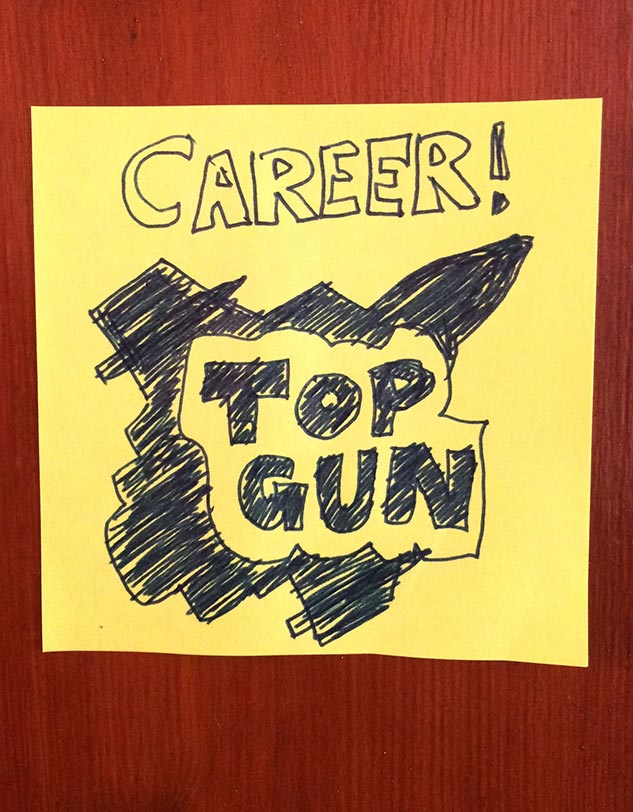 CAREER!
TOP
GUN